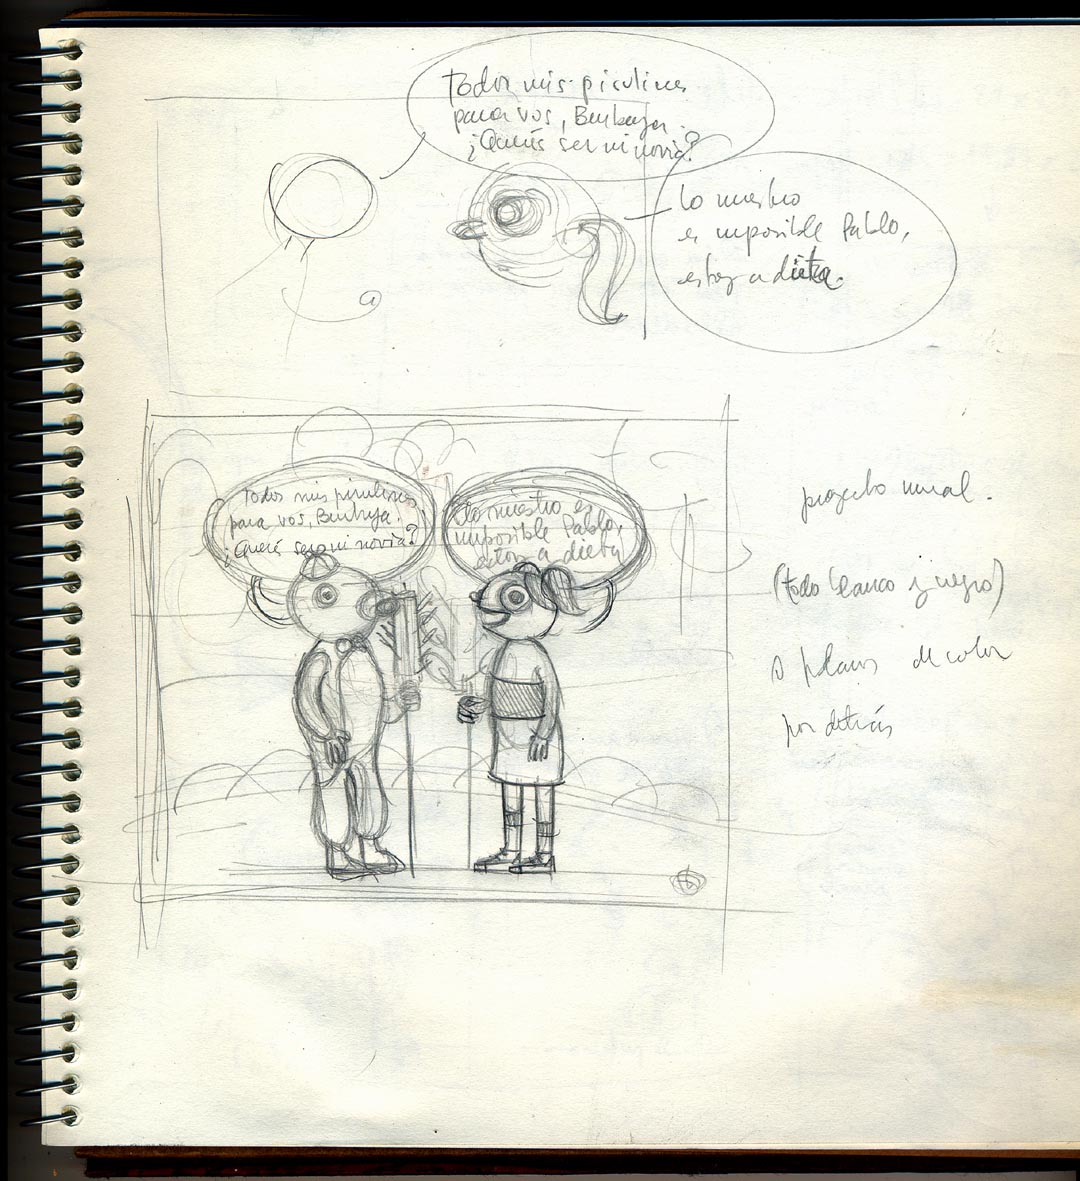 Todos mis pirulines
para vos, Burbuja.
¿Querés ser mi novia?
Lo nuestro
es imposible Pablo,
estoy a dieta.
Todos mis pirulines
para vos, Burbuja.
¿Querés ser mi novia?
Lo nuestro es
imposible Pablo,
estoy a dieta
proyecto mural.
(todo blanco y negro)
o planos de color
por detrás